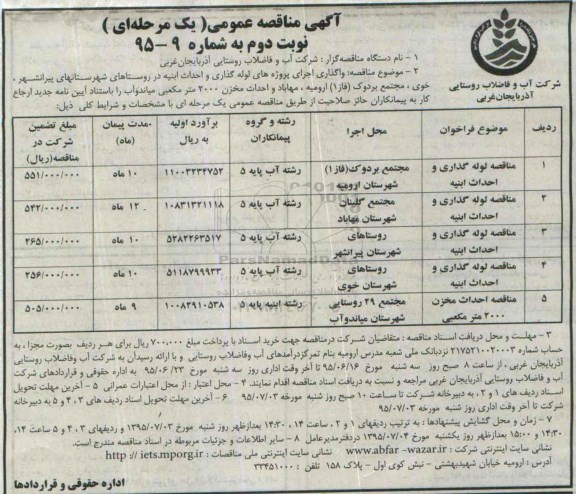 آگهی مناقصه عمومی( یک مرحله‌ای )
نوبت دوم به شماره ۹ -۹۵
شرکت آب و فاضلاب روستایی
آذربایجان‌غربی
۱ - نام دستگاه مناقصه‌گزار : شرکت آب و فاضلاب روستایی آذربایجان‌غربی
۲ - موضوع مناقصه: واگذاری اجرای پروژه های لوله گذاری و احداث ابنیه در روستاهای شهرستانهای پیرانشهر ،
خوی ، مجتمع بردوک (فاز۱) ارومیه ، مهاباد و احداث مخزن ۲۰۰۰ متر مکعبی میاندوآب را باستناد آیین نامه جدید ارجاع
کار به پیمانکاران حائز صلاحیت از طریق مناقصه عمومی یک مرحله ای با مشخصات و شرایط کلی ذیل:
ردیف	موضوع فراخوان	محل اجرا	رشته و گروه پیمانکاران	برآورد اولیه به ریال	مدت پیمان (ماه)	مبلغ تضمین شرکت در مناقصه(ریال)
۱	مناقصه لوله گذاری و احداث ابنیه	مجتمع بردوک(فاز۱) شهرستان ارومیه	رشته آب پایه ۵	۱۱۰۰۳۲۳۴۷۵۲	۱۰ ماه	۵۵۱/۰۰۰/۰۰۰
۲	مناقصه لوله گذاری و احداث ابنیه	مجتمع گلینان شهرستان مهاباد	رشته آب پایه ۵	۱۰۸۳۱۳۲۱۱۱۸	۱۲ ماه	۵۴۲/۰۰۰/۰۰۰
۳	مناقصه لوله گذاری و احداث ابنیه	روستاهای شهرستان پیرانشهر	رشته آب پایه ۵	۵۲۸۲۲۶۳۵۱۷	۱۰ ماه	۲۶۵/۰۰۰/۰۰۰
۴	مناقصه لوله گذاری و احداث ابنیه	روستاهای شهرستان خوی	رشته آب پایه ۵	۵۱۱۸۷۹۹۹۳۳	۱۰ ماه	۲۵۶/۰۰۰/۰۰۰
۵	مناقصه احداث مخزن ۲۰۰۰ متر مکعبی	مجتمع ۲۹ روستایی شهرستان میاندوآب	رشته ابنیه پایه ۵	۱۰۰۸۲۹۱۰۵۳۸	۹ ماه	۵۰۵/۰۰۰/۰۰۰
۳ - مهلت و محل دریافت اسناد مناقصه : متقاضیان شرکت درمناقصه جهت خرید اسناد با پرداخت مبلغ ۷۰۰,۰۰۰ ریال برای هر ردیف بصورت مجزا ، به
حساب شماره ۲۱۷۵۲۱۰۰۲۰۰۰۳ نزدبانک ملی شعبه مدرس ارومیه بنام تمرکزدرآمدهای آب وفاضلاب روستایی و با ارائه رسیدان به شرکت آب وفاضلاب روستایی
آذربایجان غربی ، از ساعت ۸ صبح روز سه شنبه مورخ ۹۵/۰۶/۱۶ تا آخر وقت اداری روز سه شنبه مورخ ۹۵/۰۶/۲۳ به اداره حقوقی و قراردادهای شرکت
آب و فاضلاب روستایی آذربایجان غربی مراجعه و نسبت به دریافت اسناد مناقصه اقدام نمایند. ۴ - محل اعتبار : از محل اعتبارات عمرانی ۵ - آخرین مهلت تحویل
اسناد ردیف های ۱ و ۲ ، به دبیرخانه شرکت تا ساعت ۱۰ صبح روز شنبه مورخه ۹۵/۰۷/۰۳ ۶ - آخرین مهلت تحویل اسناد ردیف های ۳ ، ۴ و ۵ به دبیرخانه
شرکت تا آخر وقت اداری روز شنبه مورخه ۹۵/۰۷/۰۳
۷ - زمان و محل گشایش پیشنهادها : به ترتیب ردیفهای ۱ و ۲ ، ساعت ۱۴ ، ۱۴:۳۰ بعدازظهر روز شنبه مورخ ۱۳۹۵/۰۷/۰۳ و ردیفهای ۳ ، ۴ و ۵ ساعت ۱۴،
۱۴:۳۰ و ۱۵:۰۰ بعدازظهر روز یکشنبه مورخ ۱۳۹۵/۰۷/۰۴ دردفترمدیرعامل ۸ - سایر اطلاعات و جزئیات مربوطه در اسناد مناقصه مندرج است.
نشانی سایت اینترنتی شرکت : www.abfar -wazar.ir نشانی سایت اینترنتی ملی مناقصات : http :// iets.mporg.ir
آدرس : ارومیه خیابان شهیدبهشتی - نبش کوی اول - پلاک ۱۵۸ تلفن : ۳۳۴۵۱۰۰۰
اداره حقوقی و قراردادها